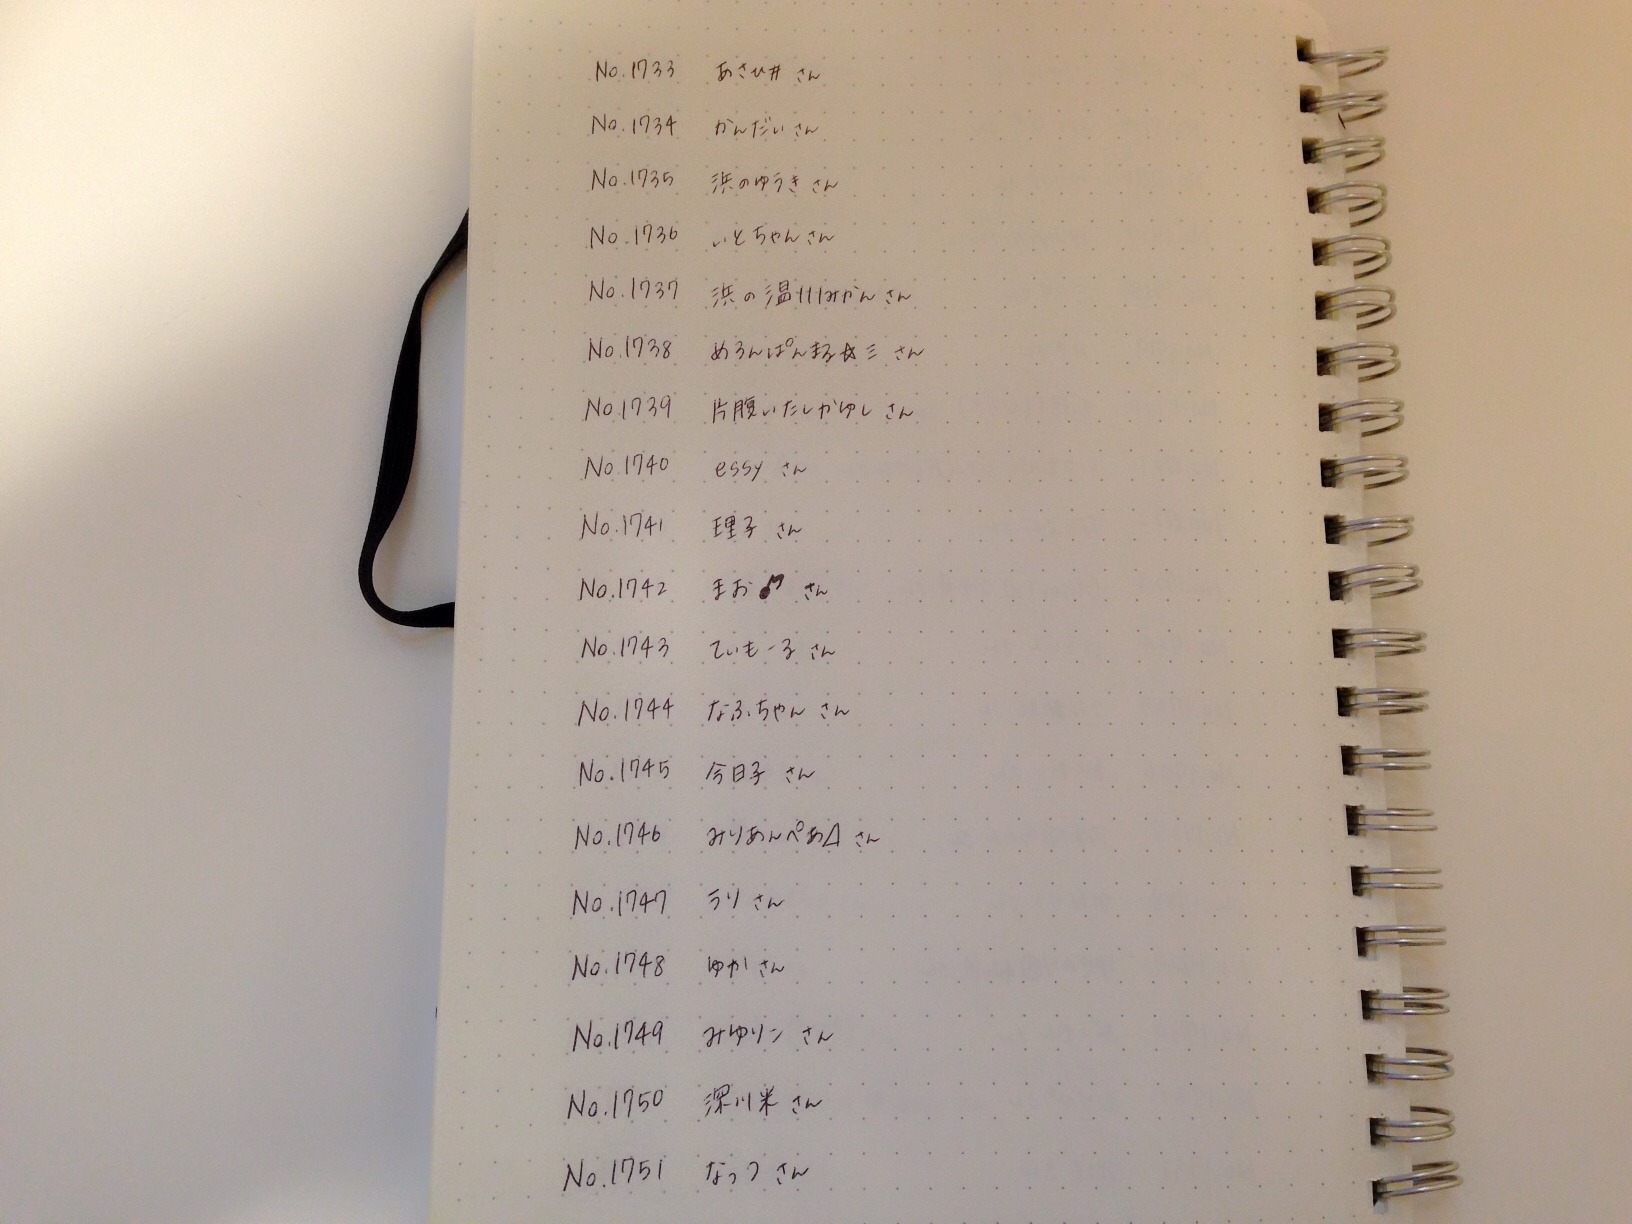 No.1733 あさひ# さん
No.1734 かんだい さん
No.1735 浜のゆうき さん
No.1736 いとちゃん さん
No.1737 浜の温州みかん さん
No.1738 めろんぱんまる☆ミ さん
No.1739 片腹いたしかゆし さん
No.1740 essy さん
No.1741 理子 さん
No.1742 まお♪ さん
No.1743 てぃもーる さん
No.1744 なふちゃん さん
No.1745 今日子 さん
No.1746 みりあんぺあ⊿ さん
No.1747 うり さん
No.1748 ゆか さん
No.1749 みゆリン さん
No.1750 深川米 さん
No.1751 なっつ さん